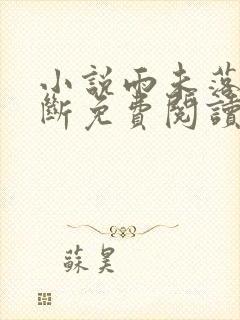 小說雨未落
斷免費閱讀
蘇昊